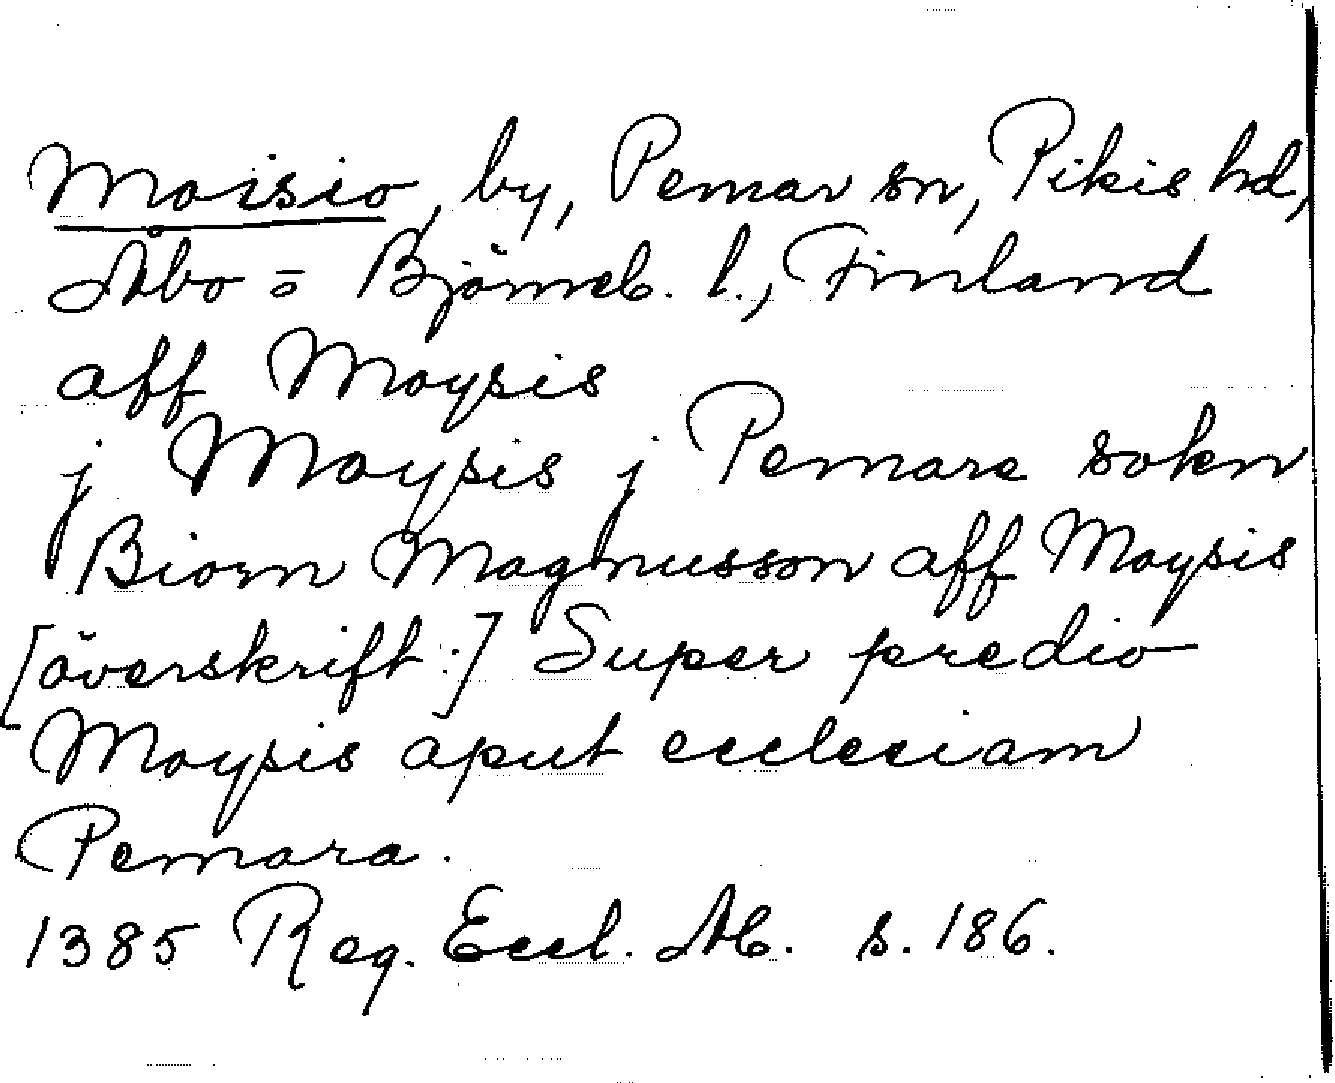 Moisio, by, Pemar sn, Pikis hd,
Åbo = Björneb. l., Finland
aff Moysis
j Moysis j Pemara sokn
Biorn Magnusson aff Moysis
[överskrift:] Super predio
Moysis aput ecclesiam
Pemara.
1385 Reg. Eccl. Ab. s. 186.